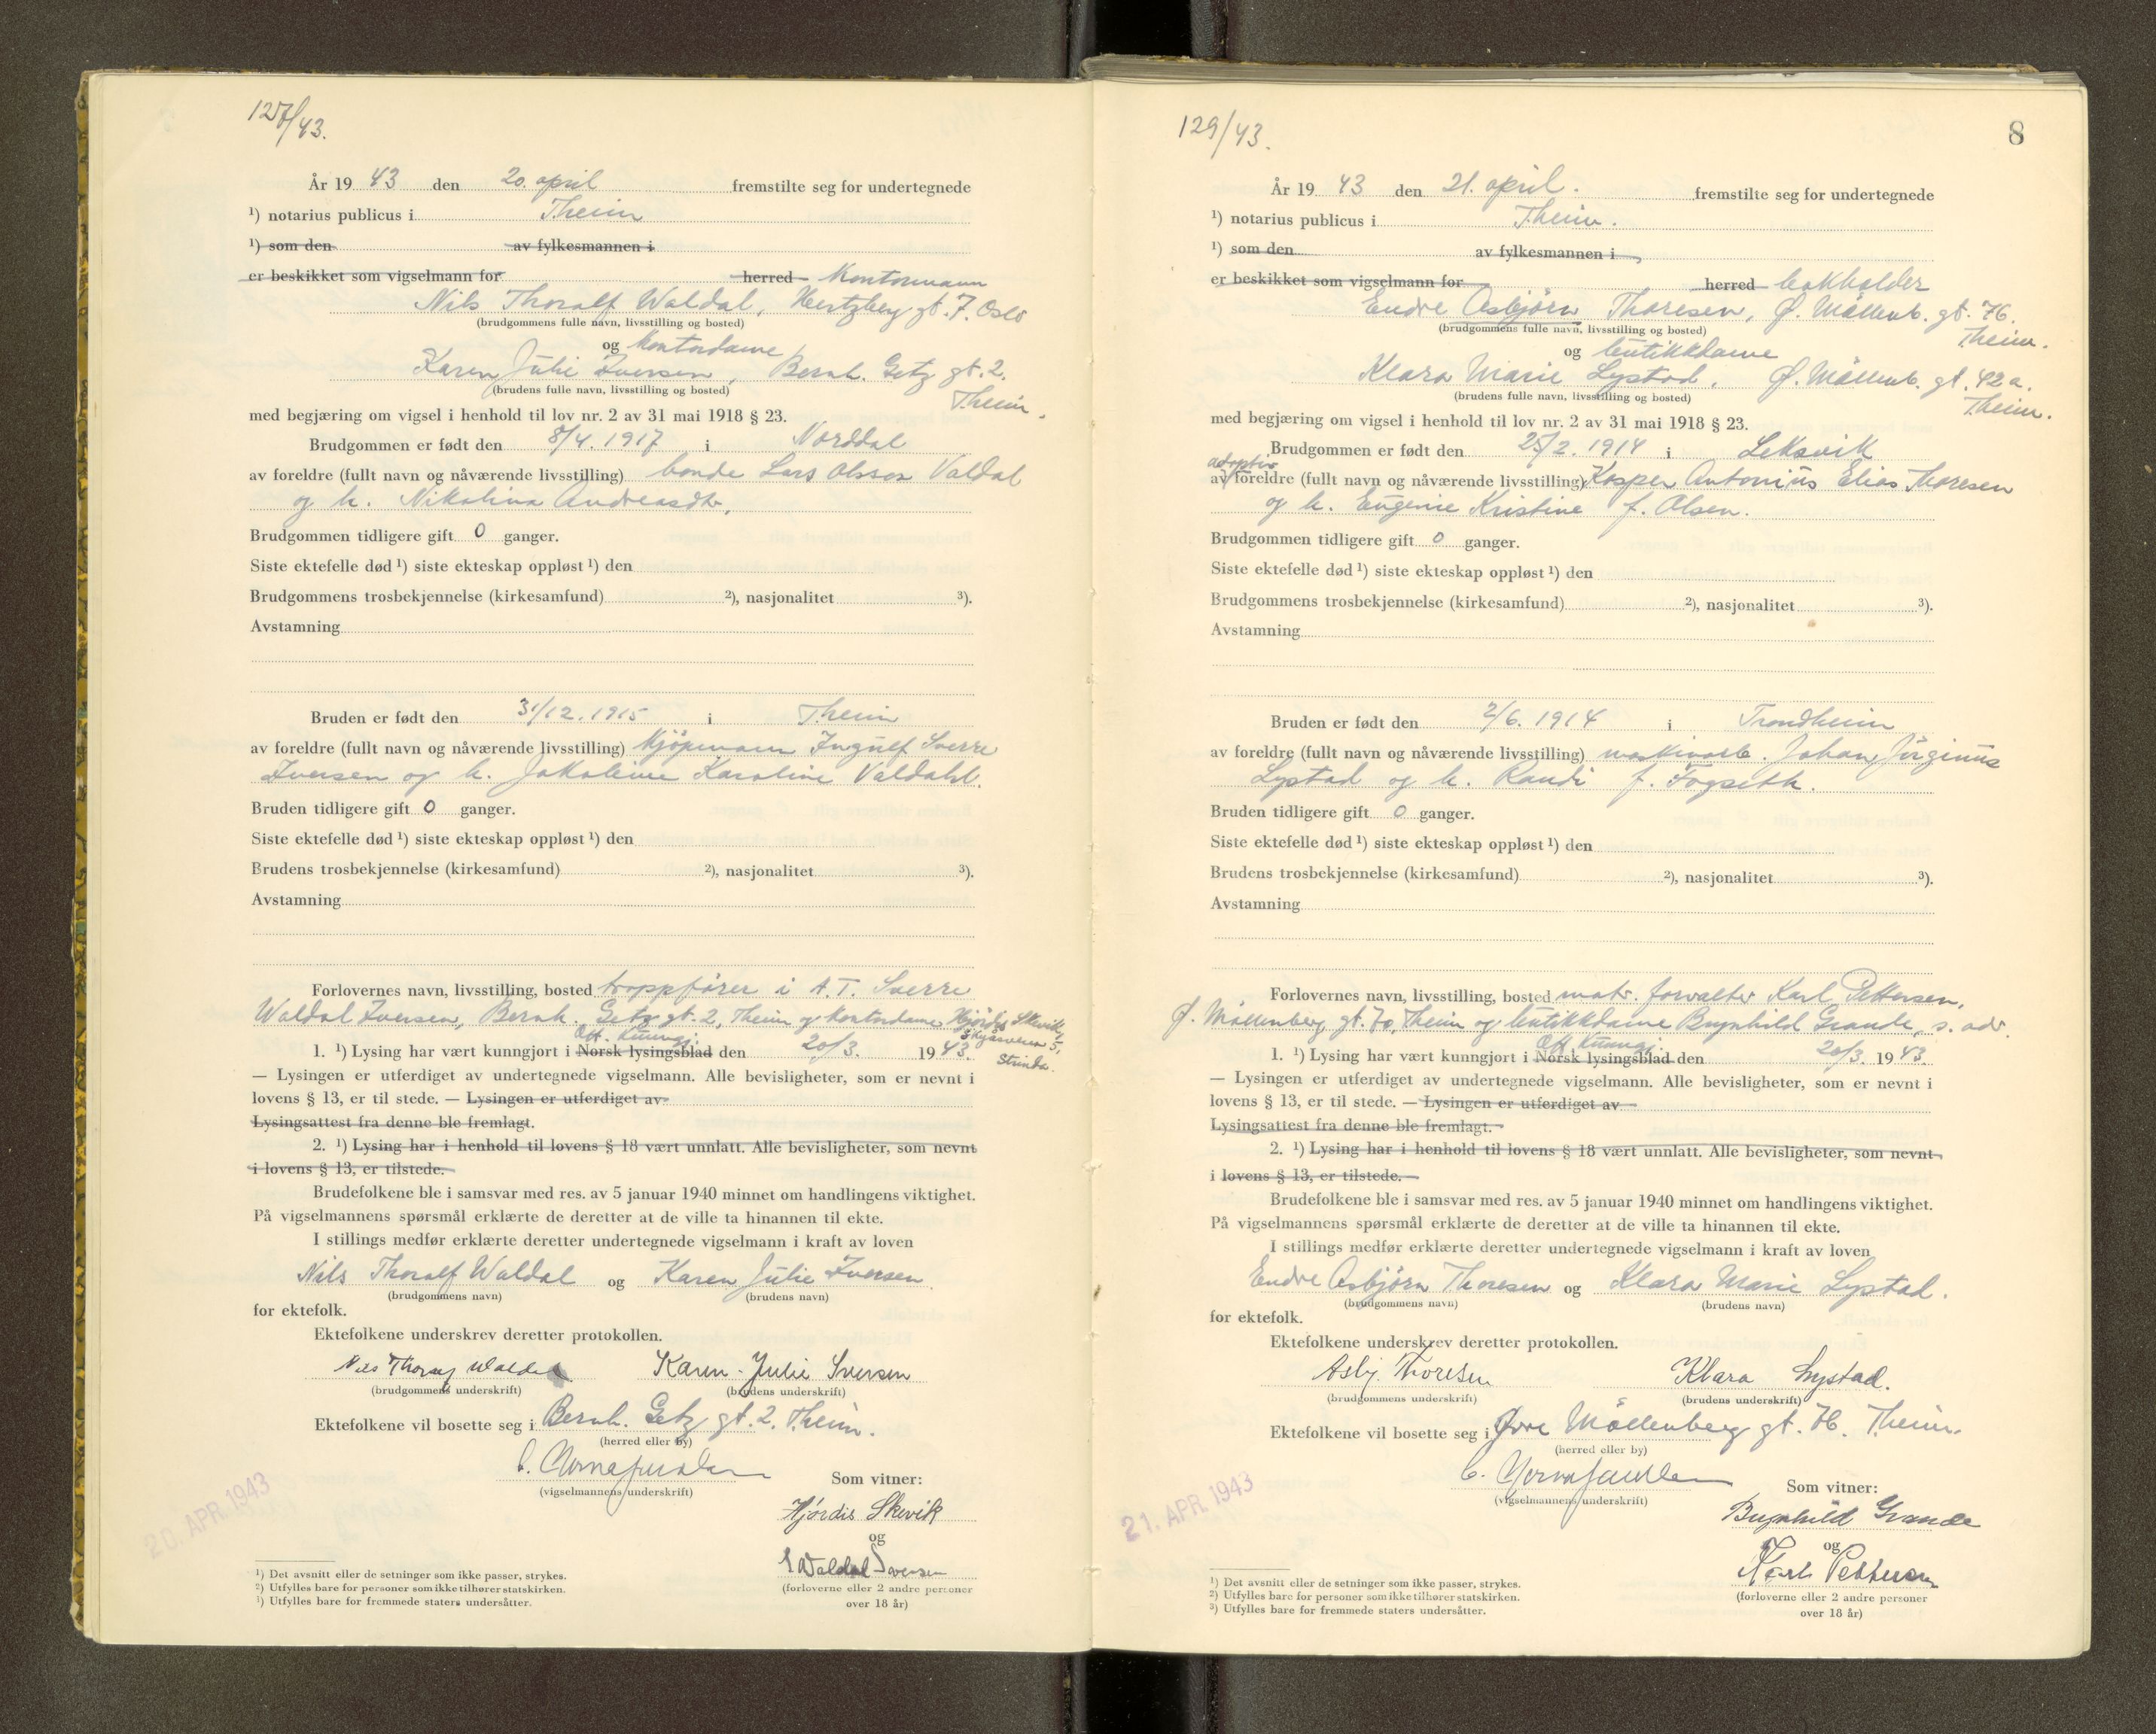 127/43.
År 19 43 den 20. april fremstilte seg for undertegnede
¹) notarius publicus i Theim
¹) som den av fylkesmannen i
er beskikket som vigselmann for herred Kontormann
Nils Thoralf Waldal, Hertzberg gt. 7. Oslo
(brudgommens fulle navn, livsstilling og bosted)
og Kontordame
Karen Julie Iversen, Bernh. Getz gt. 2.
(brudens fulle navn, livsstilling og bosted)
Theim.
med begjæring om vigsel i henhold til lov nr. 2 av 31 mai 1918 § 23.
Brudgommen er født den 8/4. 1917 i Norddal
av foreldre (fullt navn og nåværende livsstilling) bonde Lars Olsson Valdal
og h. Nikolina Andreasdtr.
Brudgommen tidligere gift 0 ganger.
Siste ektefelle død ¹) siste ekteskap oppløst ¹) den
Brudgommens trosbekjennelse (kirkesamfund) ²), nasjonalitet ³).
Avstamning
Bruden er født den 31/12. 1915 i Theim
av foreldre (fullt navn og nåværende livsstilling) kjöpmann Ingulf Sverre
Iversen og h. Jakobine Karoline Valdahl.
Bruden tidligere gift 0 ganger.
Siste ektefelle død ¹) siste ekteskap oppløst ¹) den
Brudens trosbekjennelse (kirkesamfund) ²), nasjonalitet ³).
Avstamning
Forlovernes navn, livsstilling, bosted troppfører i A.T. Sverre
Waldal Iversen, Bernh. Getz gt. 2, Theim og kontordame Hjördis Skevik,
5,
Strinda.
Off. Kunngj.
1. ¹) Lysing har vært kunngjort i Norsk lysingsblad den 20/3. 19 43.
— Lysingen er utferdiget av undertegnede vigselmann. Alle bevisligheter, som er nevnt i
lovens § 13, er til stede. — Lysingen er utferdiget av
Lysingsattest fra denne ble fremlagt.
2. ¹) Lysing har i henhold til lovens § 18 vært unnlatt. Alle bevisligheter, som nevnt
i lovens § 13, er tilstede.
Brudefolkene ble i samsvar med res. av 5 januar 1940 minnet om handlingens viktighet.
På vigselmannens spørsmål erklærte de deretter at de ville ta hinannen til ekte.
I stillings medfør erklærte deretter undertegnede vigselmann i kraft av loven
Nils Thoralf Waldal og Karen Julie Iversen
(brudgommens navn) (brudens navn)
for ektefolk.
Ektefolkene underskrev deretter protokollen.
Nils Thoralf Waldal Karen-Julie Iversen
(brudgommens underskrift) (brudens underskrift)
Ektefolkene vil bosette seg i Bernh. Getz gt. 2. Theim.
(herred eller by)
(vigselmannens underskrift)
Som vitner:
Hjördis Skevik
og
S Waldal Iversen
(forloverne eller 2 andre personer
over 18 år)
20. APR. 1943
¹) Det avsnitt eller de setninger som ikke passer, strykes.
²) Utfylles bare for personer som ikke tilhører statskirken.
³) Utfylles bare for fremmede staters undersåtter.
129/43.
8
År 19 43 den 21. april. fremstilte seg for undertegnede
¹) notarius publicus i Theim.
¹) som den av fylkesmannen i
er beskikket som vigselmann for herred bokholder
Endre Asbjörn Thoresen, Ø. Möllenb. gt. 76.
(brudgommens fulle navn, livsstilling og bosted)
Theim.
og butikkdame
Klara Marie Lystad, Ø. Möllenb. gt. 42a.
(brudens fulle navn, livsstilling og bosted)
Theim.
med begjæring om vigsel i henhold til lov nr. 2 av 31 mai 1918 § 23.
Brudgommen er født den 25/2. 1914 i Leksvik
adoptiv
av foreldre (fullt navn og nåværende livsstilling) Kasper Antonius Elias Thoresen
og h. Eugenie Kristine f. Olsen.
Brudgommen tidligere gift 0 ganger.
Siste ektefelle død ¹) siste ekteskap oppløst ¹) den
Brudgommens trosbekjennelse (kirkesamfund) ²), nasjonalitet ³).
Avstamning
Bruden er født den 2/6. 1914 i Trondheim
av foreldre (fullt navn og nåværende livsstilling) maskinarb. Johan Jörginus
Lystad og h. Randi f. Fogseth.
Bruden tidligere gift 0 ganger.
Siste ektefelle død ¹) siste ekteskap oppløst ¹) den
Brudens trosbekjennelse (kirkesamfund) ²), nasjonalitet ³).
Avstamning
Forlovernes navn, livsstilling, bosted matr. forvalter Karl Pettersen,
Ø. Möllenberg gt. 70, Theim og butikkdame Brynhild Grande, s. adr.
Off. Kunngj.
1. ¹) Lysing har vært kunngjort i Norsk lysingsblad den 20/3. 19 43.
— Lysingen er utferdiget av undertegnede vigselmann. Alle bevisligheter, som er nevnt i
lovens § 13, er til stede. — Lysingen er utferdiget av
Lysingsattest fra denne ble fremlagt.
2. ¹) Lysing har i henhold til lovens § 18 vært unnlatt. Alle bevisligheter, som nevnt
i lovens § 13, er tilstede.
Brudefolkene ble i samsvar med res. av 5 januar 1940 minnet om handlingens viktighet.
På vigselmannens spørsmål erklærte de deretter at de ville ta hinannen til ekte.
I stillings medfør erklærte deretter undertegnede vigselmann i kraft av loven
Endre Asbjörn Thoresen og Klara Marie Lystad.
(brudgommens navn) (brudens navn)
for ektefolk.
Ektefolkene underskrev deretter protokollen.
Asbj. Thoresen Klara Lystad.
(brudgommens underskrift) (brudens underskrift)
Ektefolkene vil bosette seg i Øvre Möllenberg gt. 76. Theim.
(herred eller by)
(vigselmannens underskrift)
Som vitner:
Brynhild Grande
og
Karl Pettersen
(forloverne eller 2 andre personer
over 18 år)
21. APR. 1943
¹) Det avsnitt eller de setninger som ikke passer, strykes.
²) Utfylles bare for personer som ikke tilhører statskirken.
³) Utfylles bare for fremmede staters undersåtter.